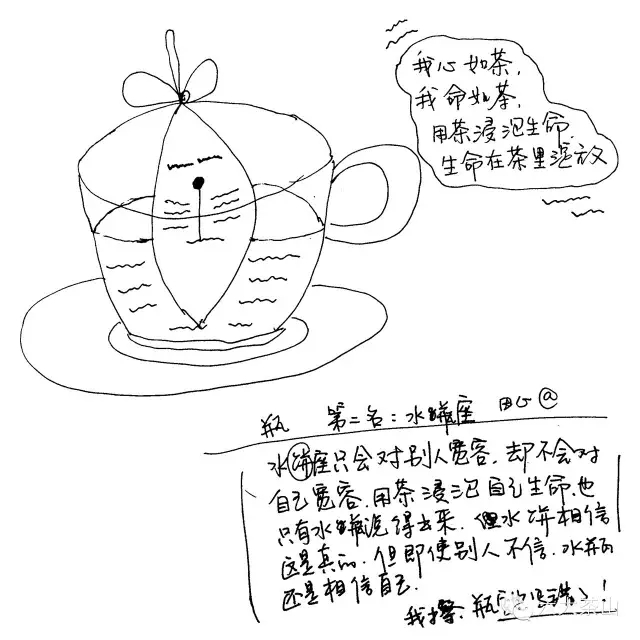 我心如茶,
我命如茶,
用茶浸泡生命,
生命在茶里泡放
瓶 第二名:水瓶座 田心@
水饼座只会对别人宽容,却不会对
自己宽容,用茶浸泡自己生命,也
只有水瓶说得出来,但水饼相信
这是真的,但即使别人不信,水瓶
还是相信自己.
我擦,瓶
六大茶山